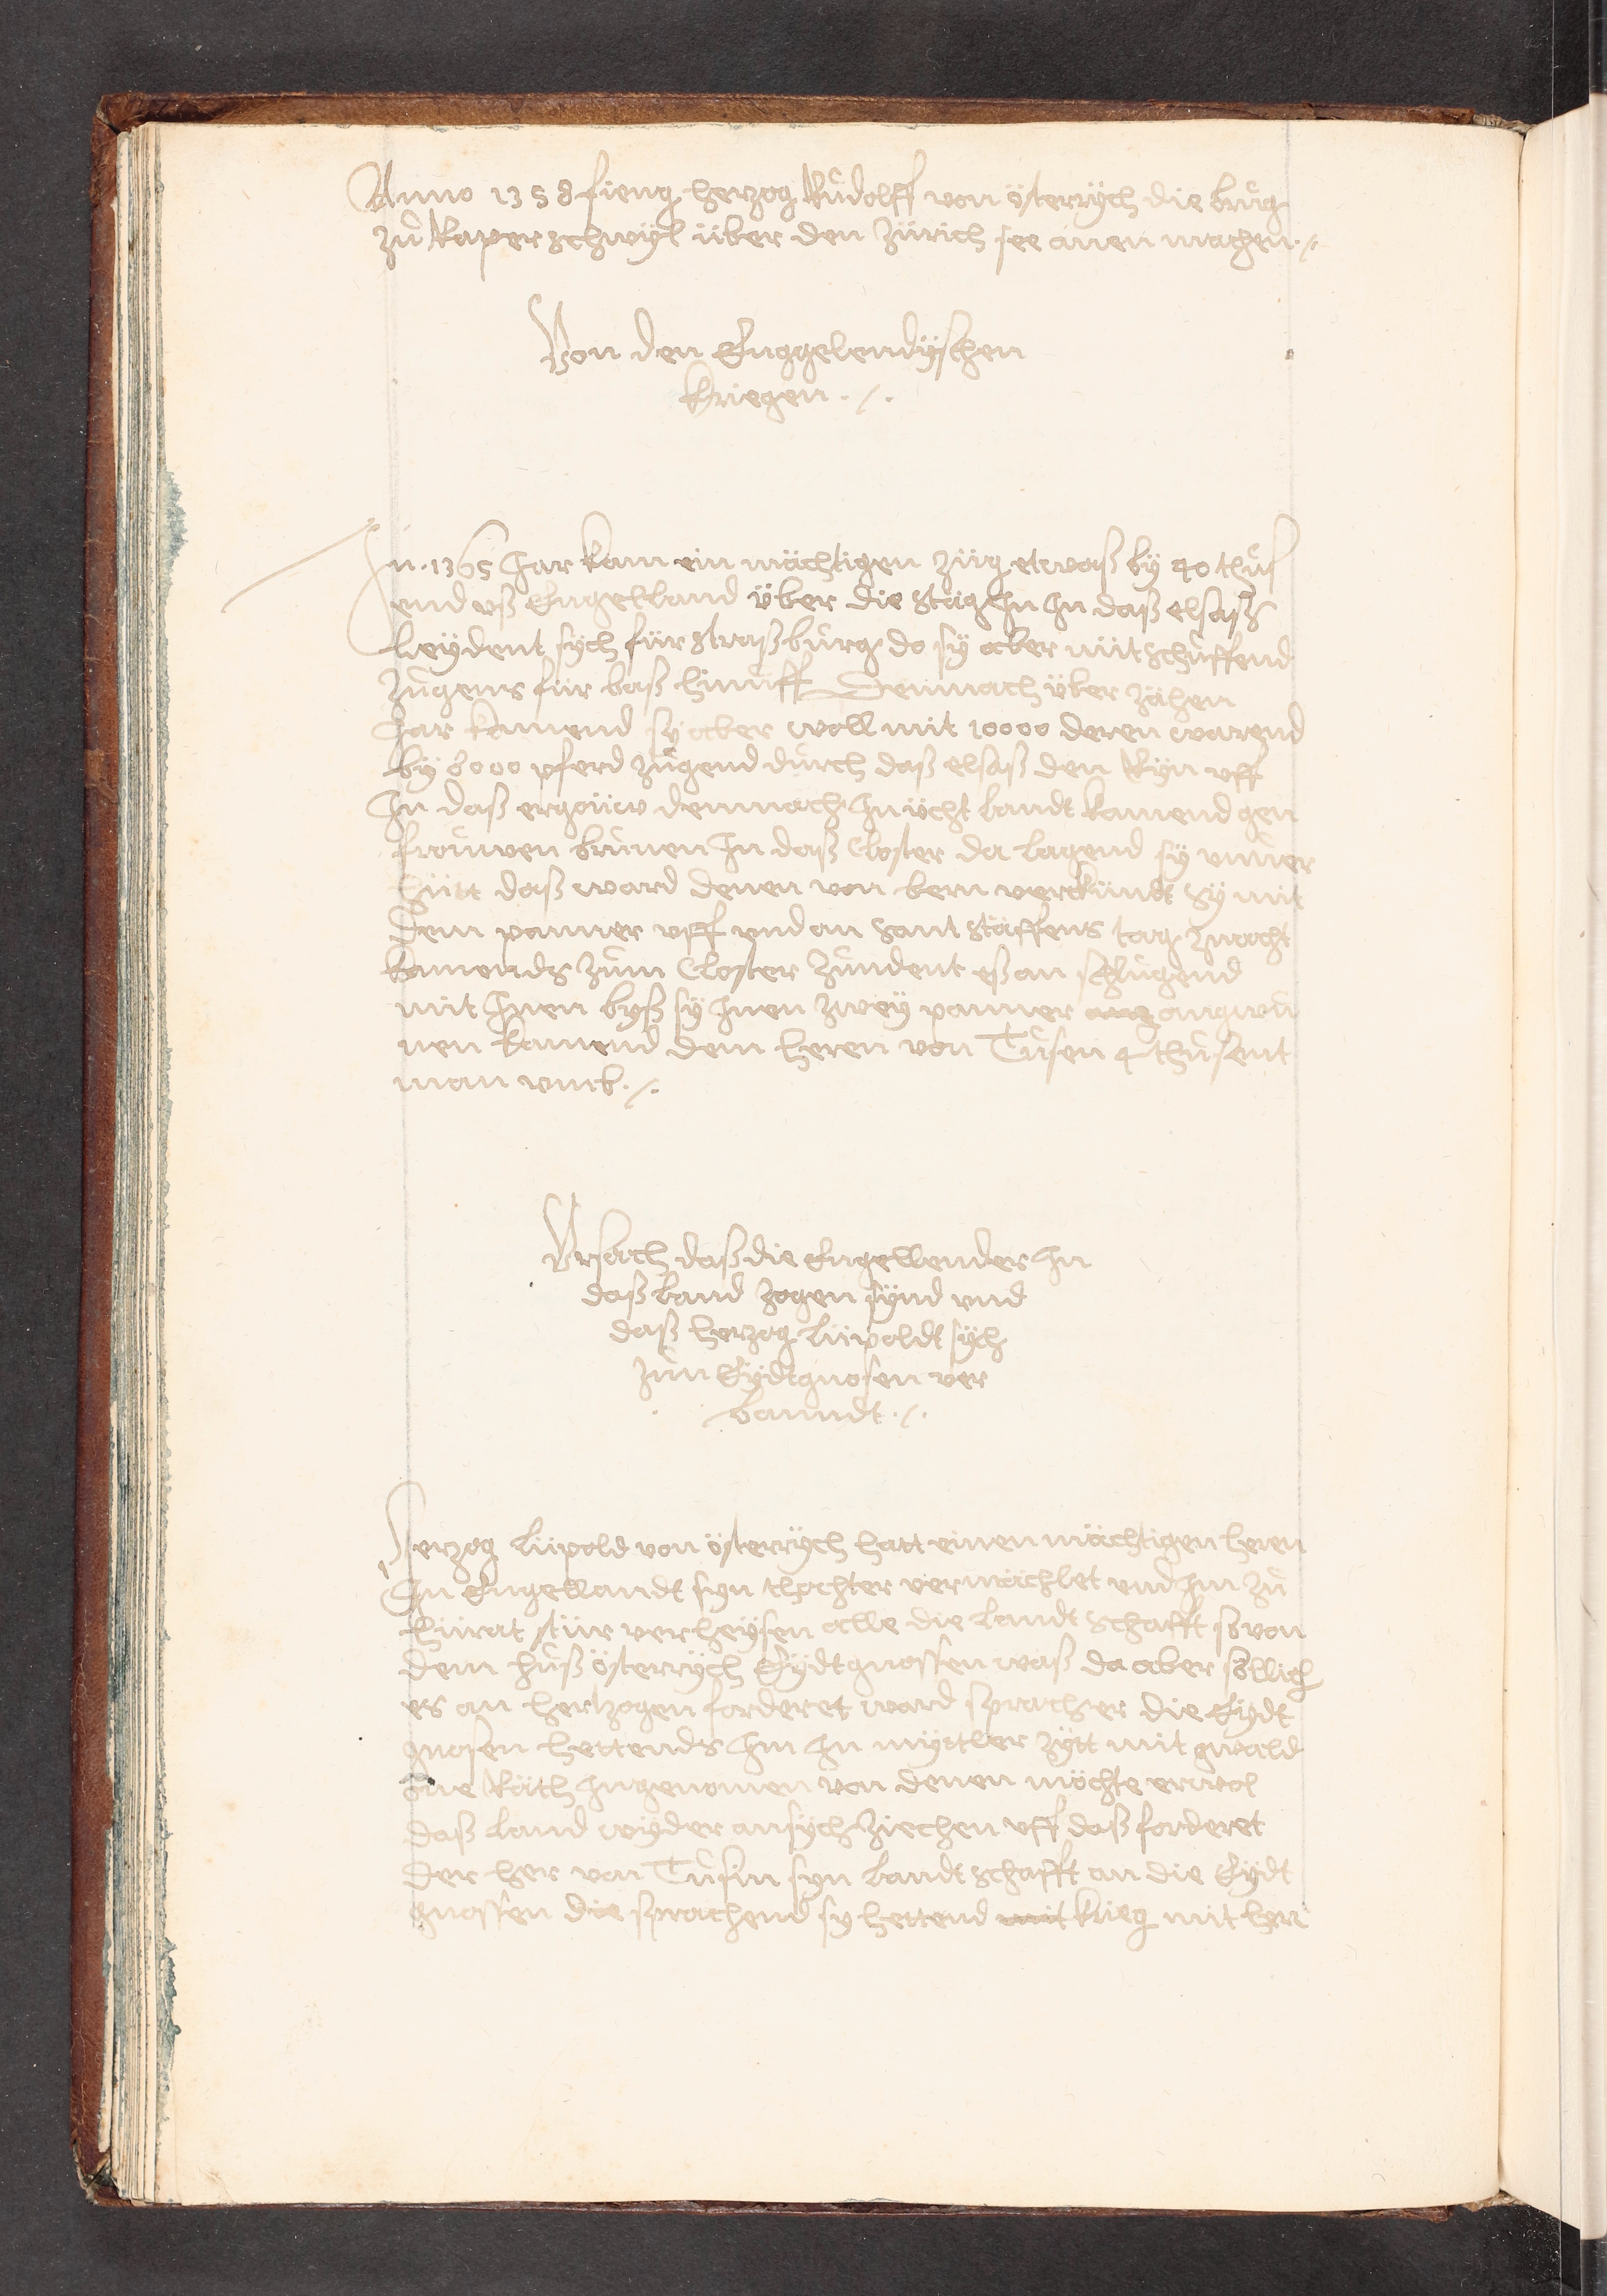 Anno 1358 fieng herzog Růdolff von österrÿch die brůg
zů Raperschwÿl über den Zürich see anen machen ./.
Von den Enggelendÿschen
kriegen ./.
In 1365 Jar kam ein mächtigen züg etwaß bÿ 40 thůs
end uß Engelland über die Stäg In In daß elsaß
leÿdent sÿch für straßbůrg do sÿ aber nüt schůffend
zugens für baß hinůff Demnach über zähen
Jar kamend sÿ aber woll mit 10000 deren warend
bÿ 8000 pferd zugend důrch daß elsaß den Rÿn uff
In daß ergöüw demnach In ücht landt kamend gen
froůwen brůnen In daß Closter da lagend sÿ
daß ward denen von bern verkündt sÿ mit
dem panner uff und an sant stäffens tag znacht
kamends zům Closter zůndent eß an schlůgend
mit Inen byß sÿ Inen zweÿ panner angwů
nen kamend dem heren von Tůsen 4 thůsent
man umb ./.
Ursach daß die Engellender In
daß land zogen sÿnd und
daß herzog lüpoldt sÿch
zůn Eÿdtgnosen ver
bandt ./.
Herzog lüpold von österrÿch hatt einen mächtigen heren
In Engellandt sÿn thochter vermächlet und Im zů
hürat stür verheÿsen alle die landtschafft so von
dem hůß österrÿch Eÿdtgnossen waß da aber söllich
es an hertzogen forderet ward sprach er die Eÿdt
gnosen hettends Im In mÿttler zÿtt mit gwald
one Rächt Ingenomen von denen möchte er wol
daß land wÿder an sÿch ziechen uff daß forderet
der her von Tůsin sÿn landtschafft an die Eÿdt
gnossen die sprachend sÿ hettend mit krieg mit herr